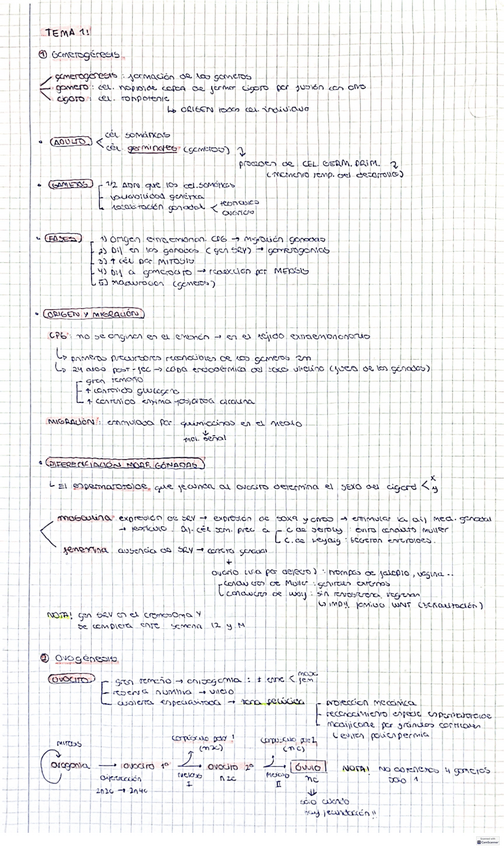 TEMA 1:
① Gametogénesis
gametogénesis: formación de los gametos
gameto: cel. haploide capaz de formar cigoto por fusión con otro
cigoto: cel. totipotente
↳ ORIGEN todas cel. individuo
• ADULTO
cél somáticas
cél germinales (gametos)
proceden de CEL GERM. PRIM.
(momento temp. del desarrollo)
• GAMETOS
1/2 ADN que las cel. somáticas
variabilidad genética
localización gonadal
testículos
ovarios
• FASES
1) Origen extraembrion. CPG → Migración gónadas
2) Dif en las gónadas (gen SRY) → gametogonias
3) ↑ cél por MITOSIS
4) Dif a gametocito → reducción por MEIOSIS
5) Maduración (gametos)
• ORIGEN Y MIGRACIÓN
CPG: no se originan en el embrión → en el tejido extraembrionario
↳ primeros precursores reconocibles de los gametos 2n
↳ 24 días post-fec → capa endodérmica del saco vitelino (lejos de las gónadas)
gran tamaño
↑ contenido glucógeno
↑ contenido enzima fosfatasa alcalina
MIGRACIÓN: estimulada por quimiocinas en el medio
mol. señal
• DIFERENCIACIÓN MORF. GÓNADAS
↳ El espermatozoide que fecunda al ovocito determina el sexo del cigoto
X
Y
masculina: expresión de SRY → expresión de SOX9 y → estimular la dif. med. gonadal
→ testículo. Dif. cél som. prec a
C. de Sertoly: evita conducto Müller
C. de Leydig: secretan
femenina: ausencia de SRY → corteza gonadal
ovario (vía por defecto): trompas de falopio, vagina...
conductos de Müller: genitales externos
conductos de Wolf: sin testosterona regresan
↳ imp. familia WNT (señalización)
NOTA! gen SRY en el cromosoma Y
se completa entre semana 12 y 14
② Ovogénesis
OVOCITO
gran tamaño →
reserva nutritiva → vitelo
cubierta especializada → zona pelúcida
protección mecánica
reconocimiento especie espermatozoide
modificable por gránulos corticales
↳ evitar poliespermia
mitosis
corpúsculo polar 1
(n2c)
corpúsculo pol 2
(nc)
ovogonia → ovocito 1º → ovocito 2º → ÓVULO
duplicación
2n2c → 2n4c
meiosis
I
n2c
meiosis
II
nc
solo cuando
hay fecundación!!
NOTA! No obtenemos 4 gametos
solo 1